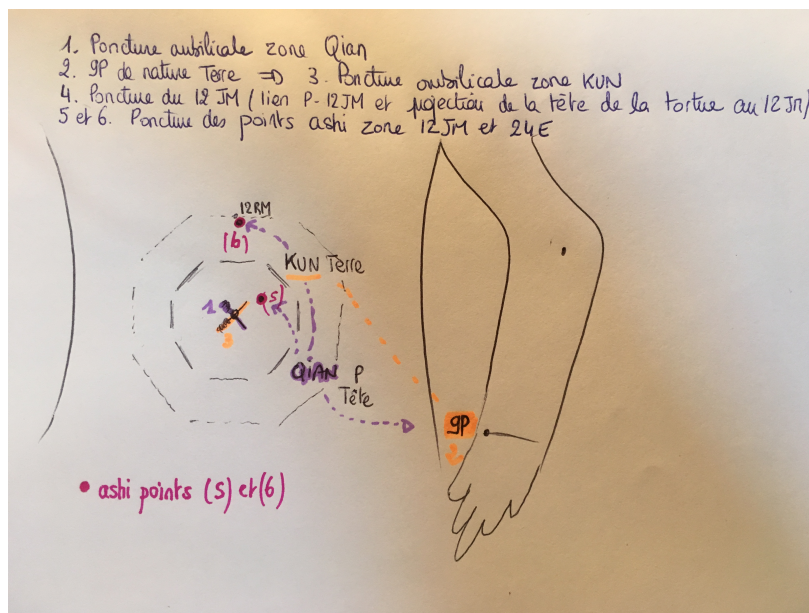 1. Poncture ombilicale zone Qian
2. 9P de nature Terre => 3. Poncture ombilicale zone KUN
4. Poncture du 12 JM (lien P-12JM et projection de la tête de la tortue au 12JM)
5 et 6. Poncture des points ashi zone 12JM et 24E
12RM
(6)
KUN Terre
1
(5)
3
QIAN P
Tête
9P
2
• ashi points (5) et (6)